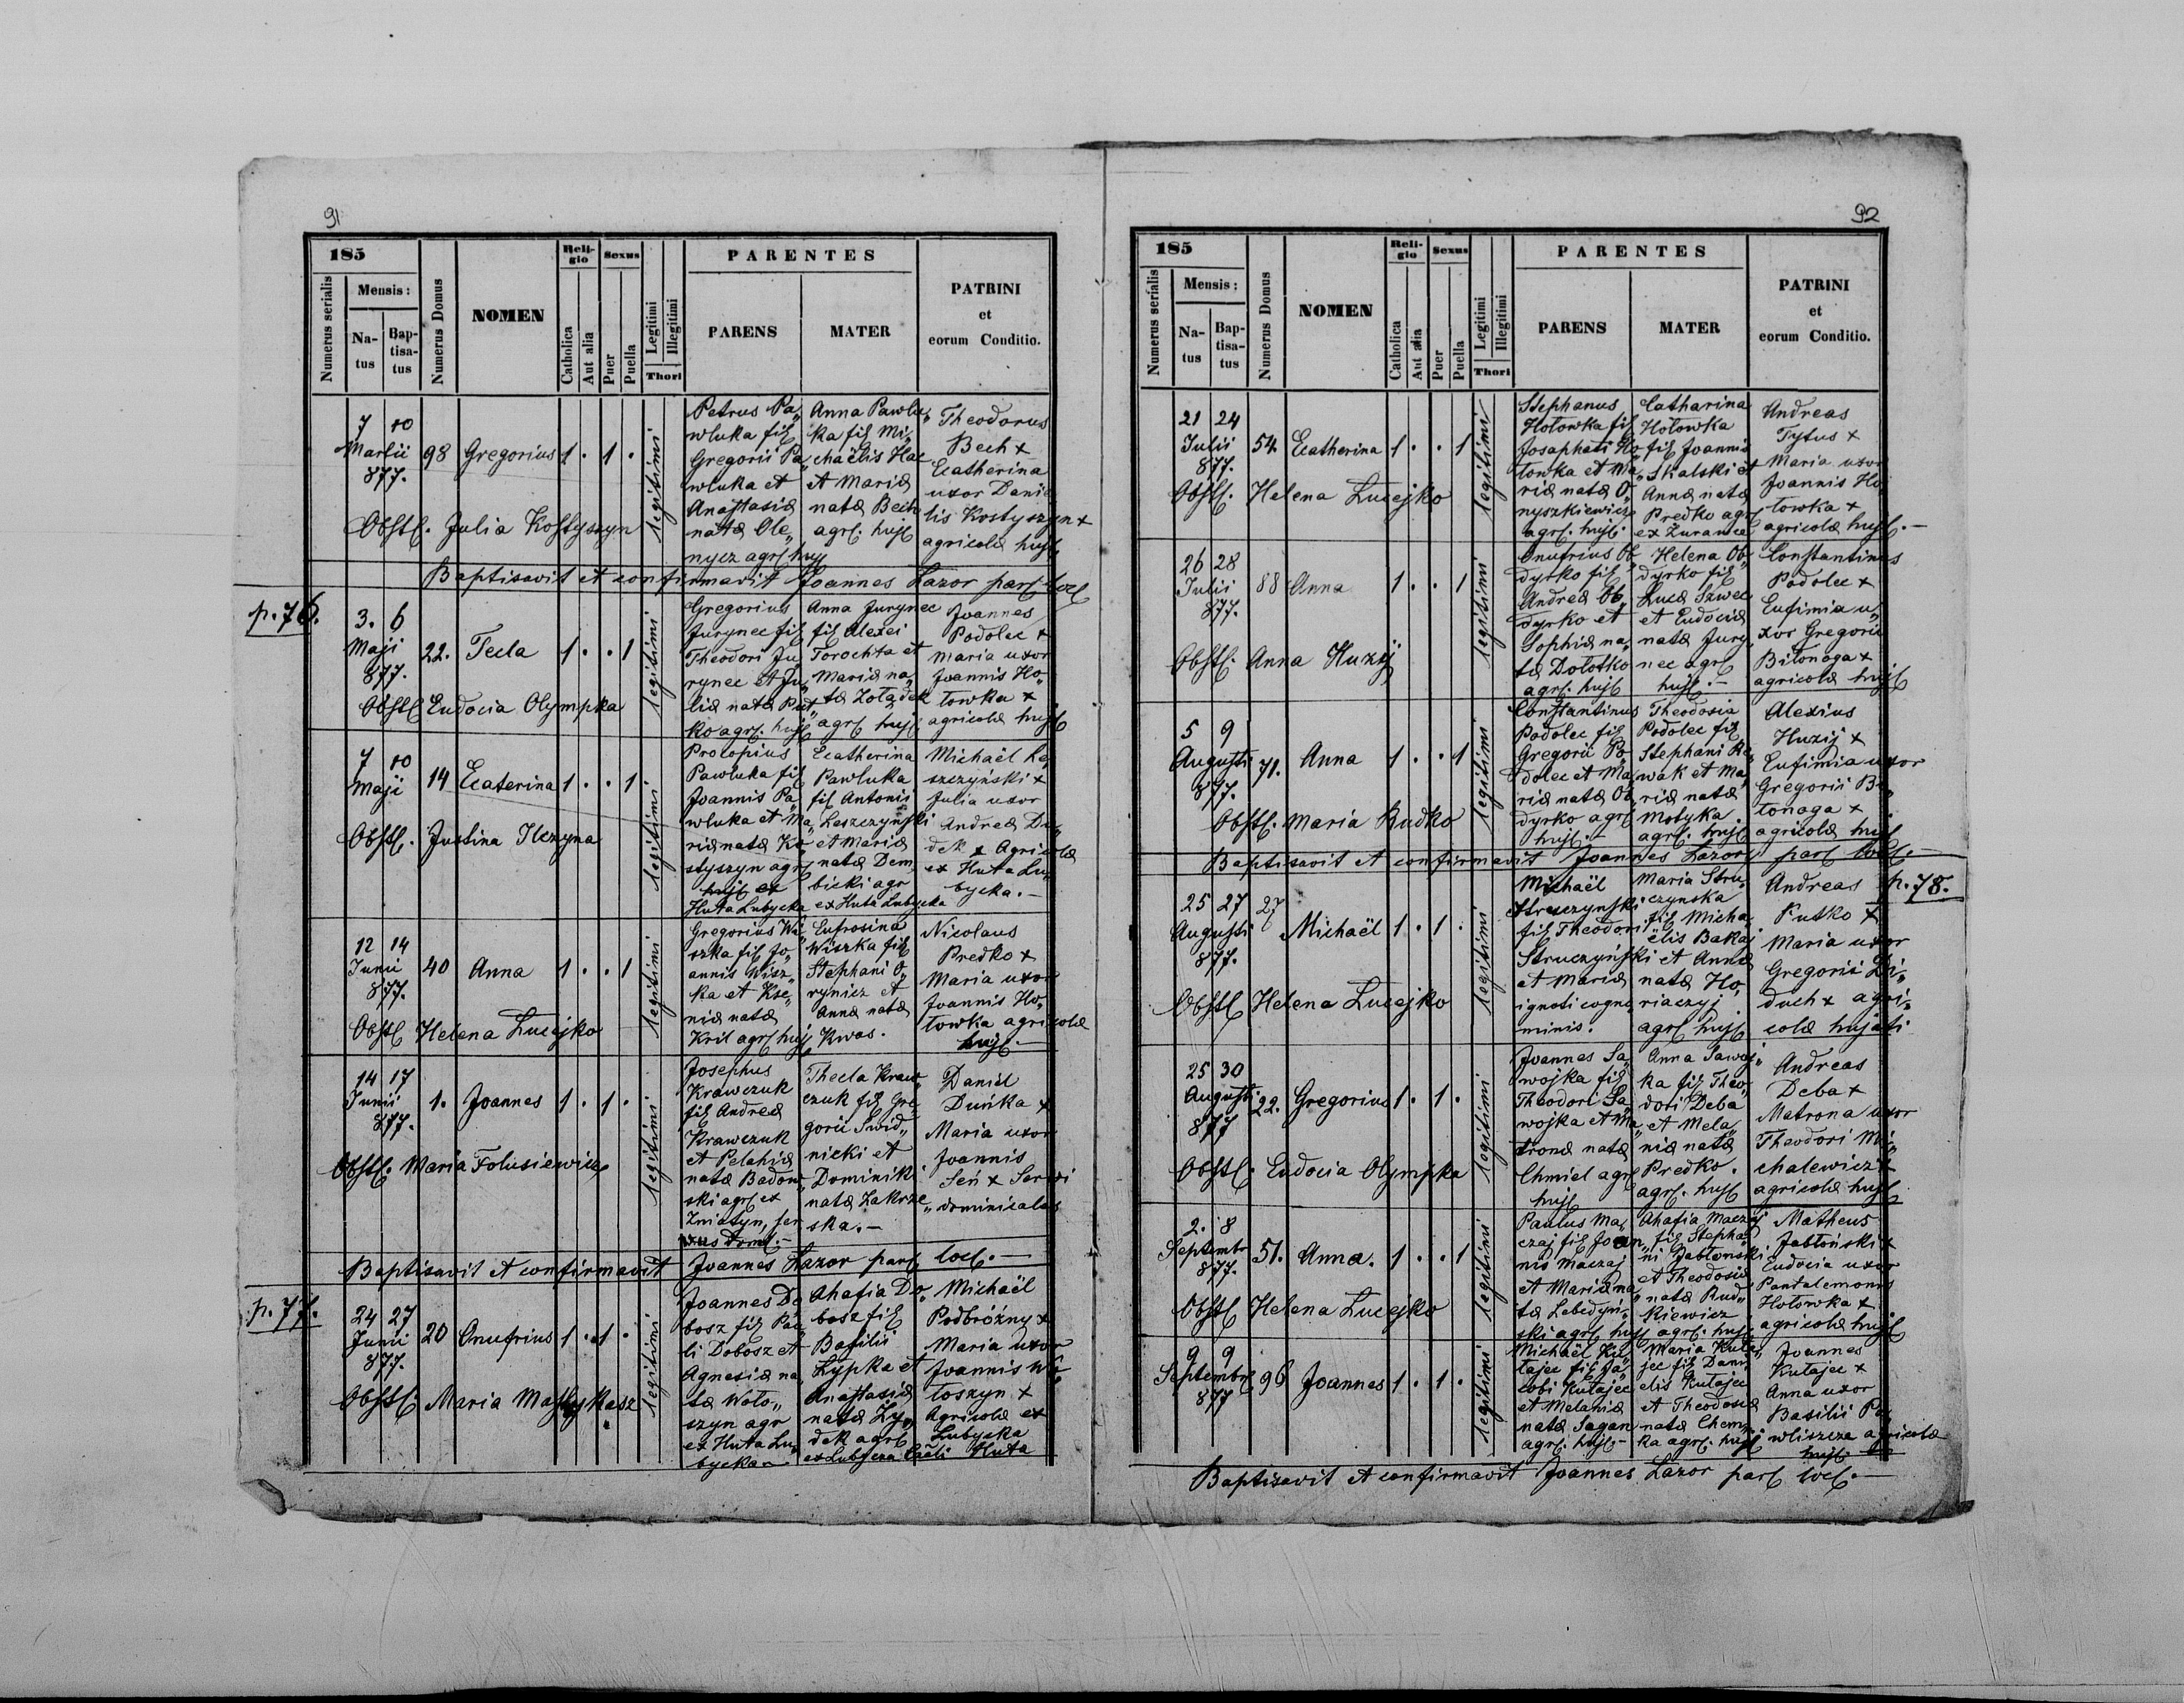 91
185
Numerus serialis
Mensis:
Natus
Baptisatus
Numerus Domus
NOMEN
Religio
Catholica
Aut alia
Sexus
Puer
Puella
Legitimi
Illegitimi
Thori
PARENTES
PARENS
MATER
PATRINI
et
eorum Conditio.
7 10
Martii
877.
98 Gregorius 1 . 1 .
legitimi
Petrus Pa„
wluka fil
Gregorii Pa
wluka et
Anastasiæ
natæ Ole„
nycz agrl. hujl
Anna Pawlu„
ka fil Mi„
chaëlis Hac
et Mariæ
natæ Bech
agrl. hujl
Theodorus
Bech +
Ecatherina
uxor Danie
lis Kostyszyn +
agricolæ hujl
Obstl. Julia Kostyszyn
Baptisavit et confirmavit Joannes Lazor parl locl
p. 76.
3. 6
Maji
877.
22. Tecla 1 . . 1
legitimi
Gregorius
Jurynec fil
Theodori Ju
rynec et Ju„
liæ natæ Pred„
ko agrl. hujl
Anna Jurynec
fil Alexei
Torochta et
Mariæ na„
tæ Żołądek
agrl hujl
Joannes
Podolec +
Maria uxor
Joannis Ho„
towka +
agricolæ hujl
Obstl Eudocia Olympka
7 10
Maji
14 Ecaterina 1 . . 1
legitimi
Procopius
Pawluka fil
Joannis Pa„
wluka et Ma„
riæ natæ Ko„
styszyn agrl
hujl ex
Huta Lubycka
Ecatherina
Pawluka
fil Antonii
Leszczyński
et Mariæ
natæ Dem„
bicki agr
ex Huta Lubycka
Michaël Le
szczyński +
Julia uxor
Andreæ Du„
dek + Agricolæ
ex Huta Lu„
bycka.—
Obstl. Justina Ilczyna
12 14
Junii
877.
40 Anna 1 . . 1
legitimi
Gregorius Wi„
szka fil Jo„
annis Wisz„
ka et Kse„
niæ natæ
Kril agrl huj
Eufrosina
Wiszka fil
Stephani O„
rynicz et
Annæ natæ
Kwas.
Nicolaus
Predko +
Maria uxor
Joannis Ho„
towka agricolæ
hujl.—
Obstl Helena Lucejko
14 17
Junii
877.
1. Joannes 1 . 1 .
legitimi
Josephus
Krawczuk
fil Andreæ
Krawczuk
et Pelahiæ
natæ Badow„
ski agrl ex
Żniatyn, ser
vus doml.—
Thecla Kraw„
czuk fil Gre„
gorii Swid„
nicki et
Dominiki
natæ Zakrze„
ska.—
Daniel
Duńka +
Maria uxor
Joannis
Seń + Servi
dominicales
Obstl. Maria Folusiewicz
Baptisavit et confirmavit Joannes Lazor parl locl.—
p. 77.
24 27
Junii
877.
20 Onufrius 1 . 1 .
legitimi
Joannes Do
bosz fil Pau„
li Dobosz et
Agnesiæ na„
tæ Woło„
szyn agr
ex Huta Lu„
bycka—
Ahafia Do„
bosz fil
Basilii
Lypka et
Anastasiæ
natæ Ży„
dek agrl
ex Lubycza
Michaël
Podbróżny +
Maria uxor
Joannis Wo„
łoszyn +
Agricolæ ex
Lubycka
Huta
Obstl Maria
92
185
Numerus serialis
Mensis:
Natus
Baptisatus
Numerus Domus
NOMEN
Religio
Catholica
Aut alia
Sexus
Puer
Puella
Legitimi
Illegitimi
Thori
PARENTES
PARENS
MATER
PATRINI
et
eorum Conditio.
21 24
Julii
877.
54 Ecatherina 1 . . 1
legitimi
Stephanus
Hołowka fil
Josaphati Ho„
łowka et Ma„
riæ natæ O„
nyszkiewicz
agrl. hujl.
Catharina
Hołowka
fil Joannis
Skalski et
Annæ natæ
Predko agrl
ex Żurawce
Andreas
Tytus +
Maria uxor
Joannis Ho„
łowka +
agricolæ hujl.—
Obstl. Helena Lucejko
26 28
Julii
877.
88 Anna 1 . . 1
legitimi
Onufrius Ob„
dyrko fil
Andreæ Ob„
dyrko et
Sophiæ na„
tæ Dołotko
agrl. hujl
Helena Ob„
dyrko fil
Lucæ Szwec
et Eudociæ
natæ Jury„
nec agrl
hujl.—
Constantinus
Podolec +
Eufimia u„
xor Gregorii
Biłonoga +
agricolæ hujl
Obstl. Anna Huzij
5 9
Augusti
877.
71. Anna 1 . . 1
legitimi
Constantinus
Podolec fil
Gregorii Po„
dolec et Ma„
riæ natæ Ob„
dyrko agrl
hujl.—
Theodosia
Podolec fil
Stephani Ra„
wak et Ma„
riæ natæ
Motyka.
agrl. hujl
Alexius
Huzij +
Eufimia uxor
Gregorii Bi„
łonoga +
agricolæ hujl
Obstl. Maria Rudko
Baptisavit et confirmavit Joannes Lazor parl locl.—
p. 78.
25 27
Augusti
877.
27 Michaël 1 . 1 .
legitimi
Michaël
Struczyński
fil Theodori
Struczyński
et Mariæ
ignoti cogno„
minis.
Maria Stru„
czynska
fil Micha„
ëlis Bakaj
et Annæ
natæ Ho„
riaczyj
agrl hujl
Andreas
Futko +
Maria uxor
Gregorii Di„
duch + agri„
colæ hujati
Obstl Helena Lucejko
25 30
Augusti
877
22. Gregorius 1 . 1 .
legitimi
Joannes Sa„
wojka fil
Theodori Sa„
wojka et Ma„
tronæ natæ
Chmiel agrl
hujl
Anna Sawoj„
ka fil Theo„
dori Deba
et Mela„
niæ natæ
Predko.
agrl. hujl
Andreas
Deba +
Matrona uxor
Theodori Mi„
chalewicz +
agricolæ hujl
Obstl. Eudocia Olympka
2. 8
Septembr
877.
51. Anna. 1 . . 1
legitimi
Paulus Ma„
czaj fil Joan„
nis Maczaj
et Mariæ na„
tæ Lebedyń„
ski agrl hujl
Ahafia Maczaj
fil Stepha„
ni Jabłonski
et Theodosiæ
natæ Rud„
kiewicz
agrl. hujl
Matheus
Jabłoński +
Eudocia uxor
Pantalemonis
Hołowka +
agricolæ hujl
Obstl Helena Lucejko
9 9
Septembr
877
96 Joannes 1 . 1 .
legitimi
Michaël Ku„
tajec fil Ja„
cobi Kutajec
et Melaniæ
natæ Sagan
agrl. hujl.—
Maria Kuta„
jec fil Dani„
elis Kutajec
et Theodosiæ
natæ Chom„
ka agrl. hujl
Joannes
Kutajec +
Anna uxor
Basilii Pa„
wliszcze agricolæ
hujl
Baptizavit et confirmavit Joannes Lazor parl locl.—